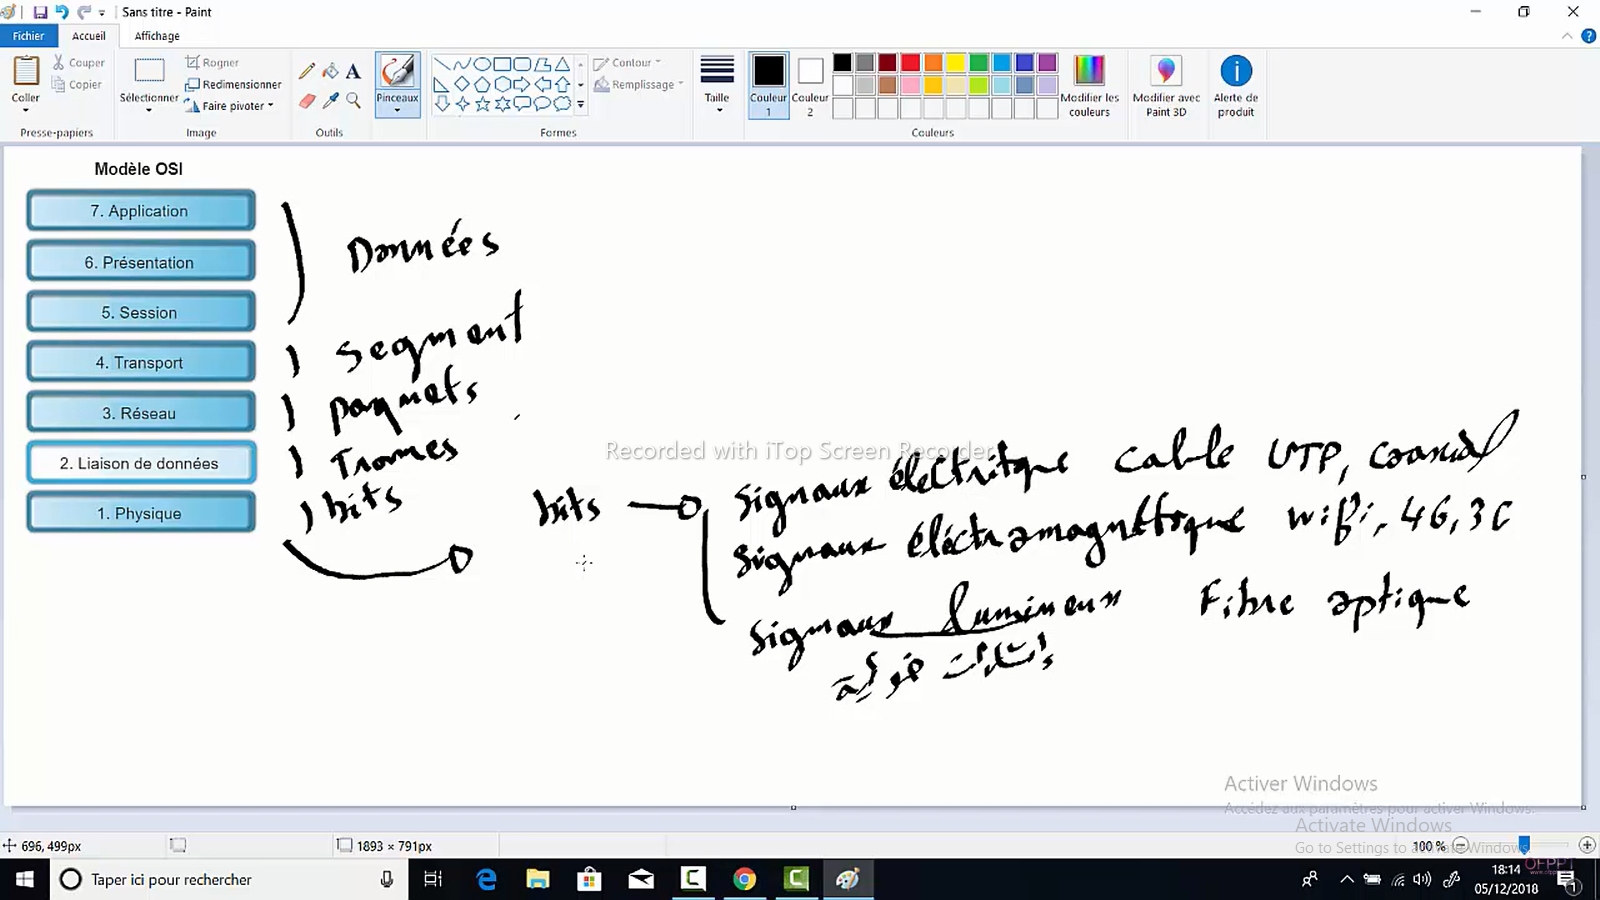 Sans titre - Paint
Fichier
Accueil
Affichage
Coller
Couper
Copier
Presse-papiers
Sélectionner
Rogner
Redimensionner
Faire pivoter
Image
A
Outils
Pinceaux
Formes
Contour
Remplissage
Taille
Couleur 1
Couleur 2
Couleurs
Modifier les couleurs
Modifier avec Paint 3D
Alerte de produit
Modèle OSI
7. Application
6. Présentation
5. Session
4. Transport
3. Réseau
2. Liaison de données
1. Physique
Données
Segment
paquets
Trames
bits
bits
Signaux électritque cable UTP, coaxial
Signaux éléctromagnéttique wifi, 4G, 3G
Signaux lumineux Fibre optique
إشارات ضوئية
Recorded with iTop Screen Recorder
Activer Windows
Accédez aux paramètres pour activer Windows.
Activate Windows
Go to Settings to activate Windows.
696, 499px
1893 × 791px
100 %
Taper ici pour rechercher
18:14
05/12/2018
OFPPT
1